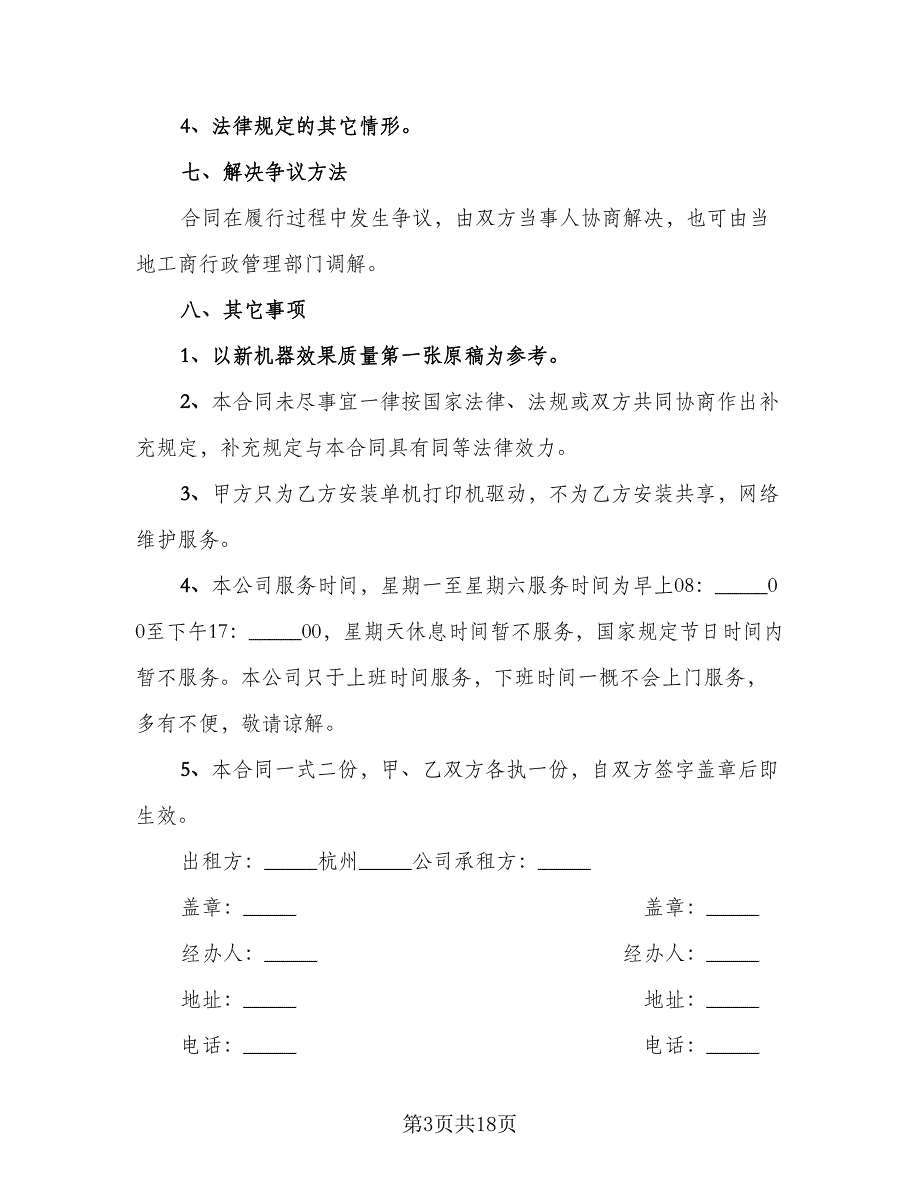 4、法律规定的其它情形。
七、解决争议方法
合同在履行过程中发生争议，由双方当事人协商解决，也可由当
地工商行政管理部门调解。
八、其它事项
1、以新机器效果质量第一张原稿为参考。
2、本合同未尽事宜一律按国家法律、法规或双方共同协商作出补
充规定，补充规定与本合同具有同等法律效力。
3、甲方只为乙方安装单机打印机驱动，不为乙方安装共享，网络
维护服务。
4、本公司服务时间，星期一至星期六服务时间为早上08：_____0
0至下午17：_____00，星期天休息时间暂不服务，国家规定节日时间内
暂不服务。本公司只于上班时间服务，下班时间一概不会上门服务，
多有不便，敬请谅解。
5、本合同一式二份，甲、乙双方各执一份，自双方签字盖章后即
生效。
出租方：_____杭州_____公司承租方：_____
盖章：_____ 盖章：_____
经办人：_____ 经办人：_____
地址：_____ 地址：_____
电话：_____ 电话：_____
第3页共18页